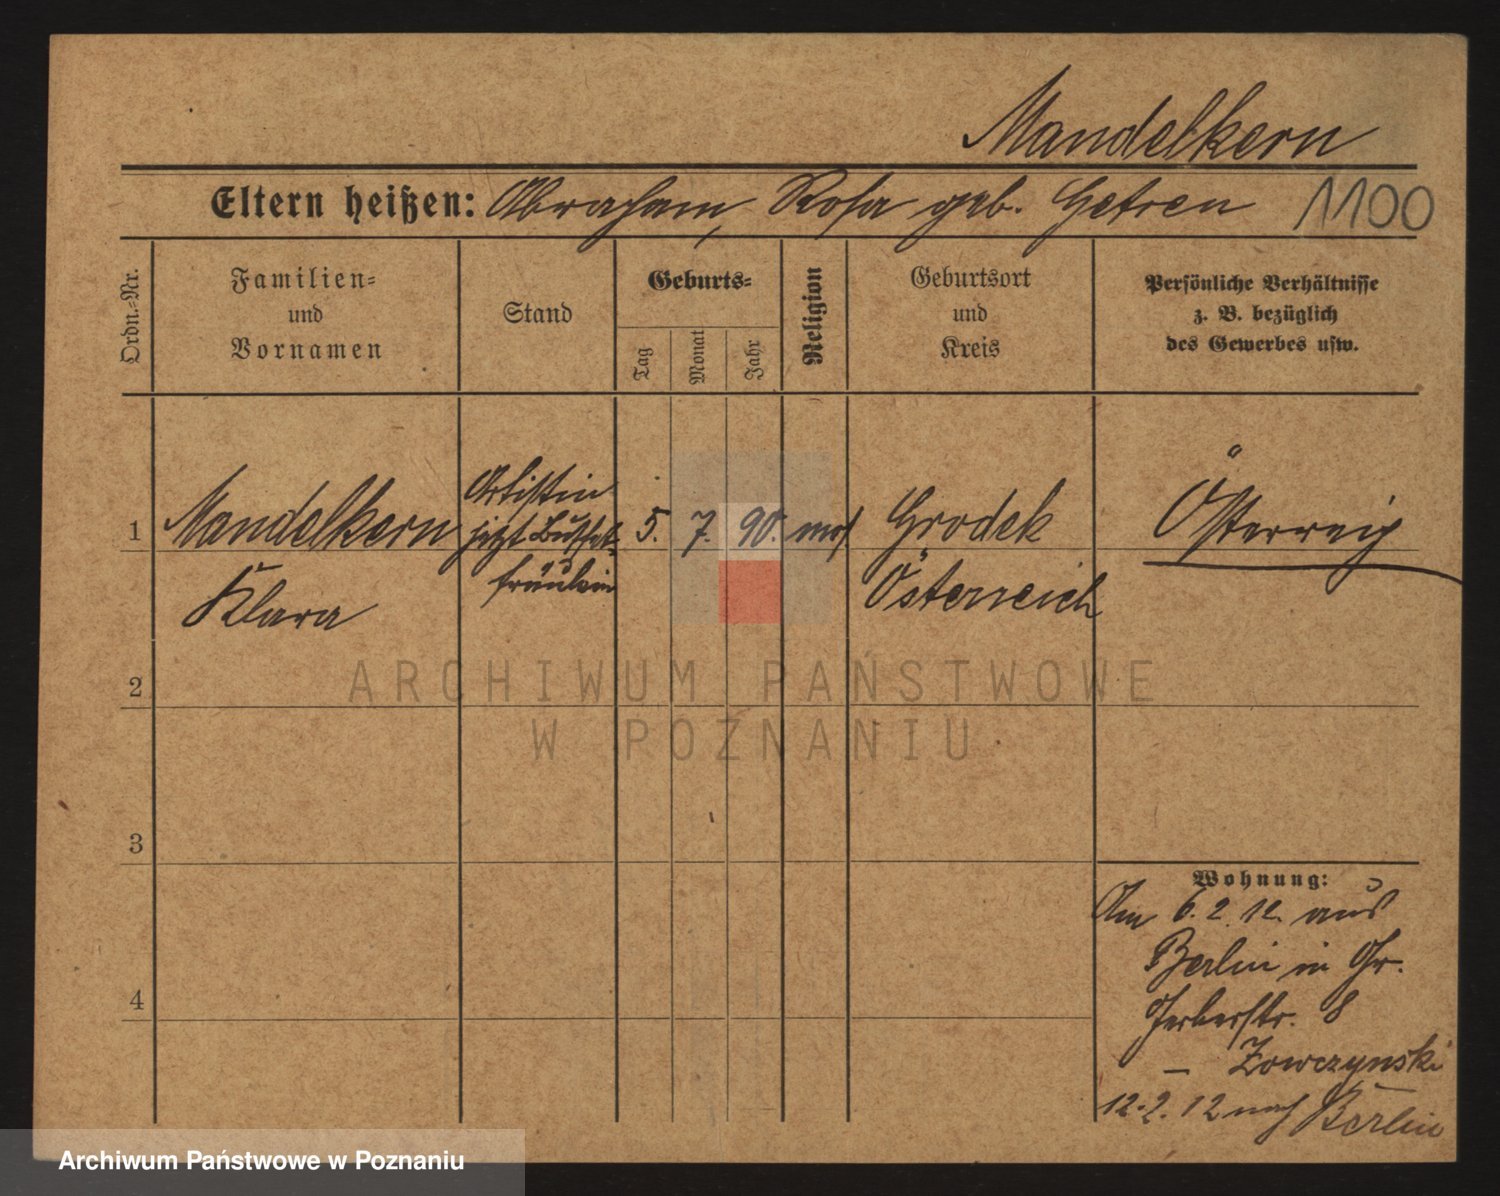 Mandelkern
Eltern heißen: Abraham, Rosa geb. Getren
1100
Ordn.-Nr.
Familien-
und
Vornamen
Stand
Geburts-
Tag
Monat
Jahr
Religion
Geburtsort
und
Kreis
Persönliche Verhältnisse
z. B. bezüglich
des Gewerbes usw.
1
Mandelkern
Klara
Artistin
jetzt Buffet-
fräulein
5.
7.
90.
mos
Grodek
Österreich
Österreich
2
3
4
Wohnung:
Am 6.2.12. aus
Berlin in Gr.
Gerberstr. 8
– Zowczynski
12.2.12 nach Berlin
ARCHIWUM PAŃSTWOWE
W POZNANIU
Archiwum Państwowe w Poznaniu